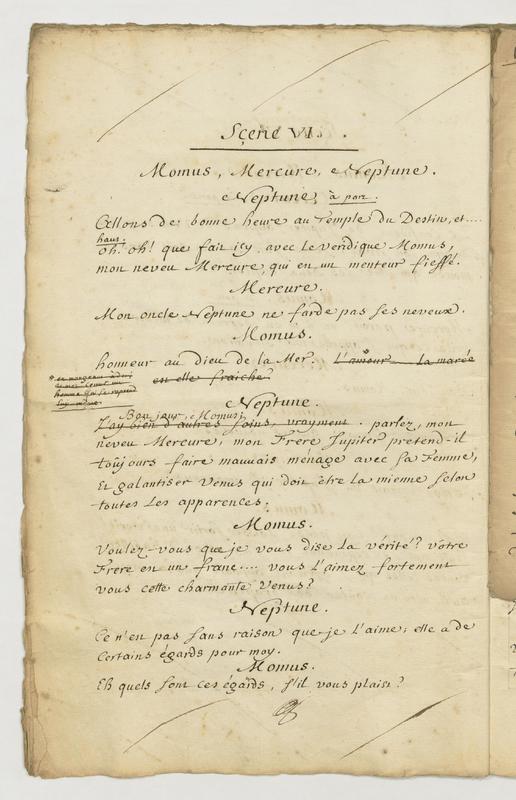 Scene VI.
Momus, Mercure, Neptune.
Neptune, à part.
Allons de bonne heure au Temple du Destin, et....
haut.
Oh! oh! que fait icy avec le veridique Momus,
mon neveu Mercure, qui en un menteur fieffé.
Mercure.
Mon oncle Neptune ne farde pas ses neveux.
Momus.
honneur au dieu de la Mer. L'amour la marée
en elle fraiche?
Neptune.
Bonjour, Momus;
J'ay bien d'autres soins, vrayment. parlez, mon
neveu Mercure; mon Frere Jupiter pretend-il
toûjours faire mauvais ménage avec sa Femme,
Et galantiser Venus qui doit être la mienne selon
toutes les apparences.
Momus.
Voulez-vous que je vous dise la vérité? Vôtre
Frere en un franc.... vous l'aimez fortement
vous cette charmante Venus?
Neptune.
Ce n'en pas sans raison que je l'aime; elle a de
certains égards pour moy.
Momus.
Eh quels sont ces égards, s'il vous plaist?